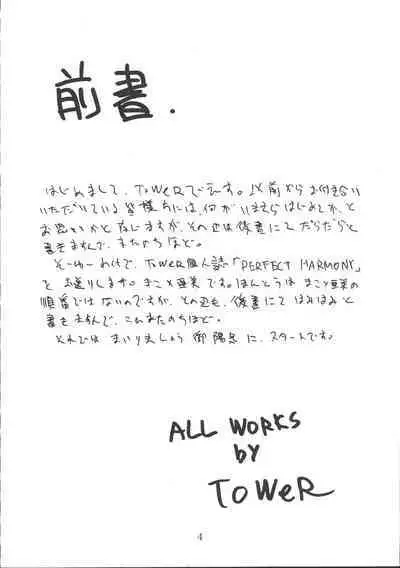 前書.
はじめまして、ToWeRでございます。以前からお付き合い
いただいている皆様方には、何がいまさらはじめてか、と
お思いかと存じますが、その辺は後書にてだらだらと
書きますんで、またのちほど。
そーゆーわけで、ToWeR個人誌「PERFECT HARMONY」
をお送りします。まこと亜美です。ほんとうはまこと亜美の
順番ではないのですが、その辺も、後書にて
書きますんで、これまたのちほど。
それではまいりましょう に、スタートです。
ALL WORKS
by
ToWeR
4